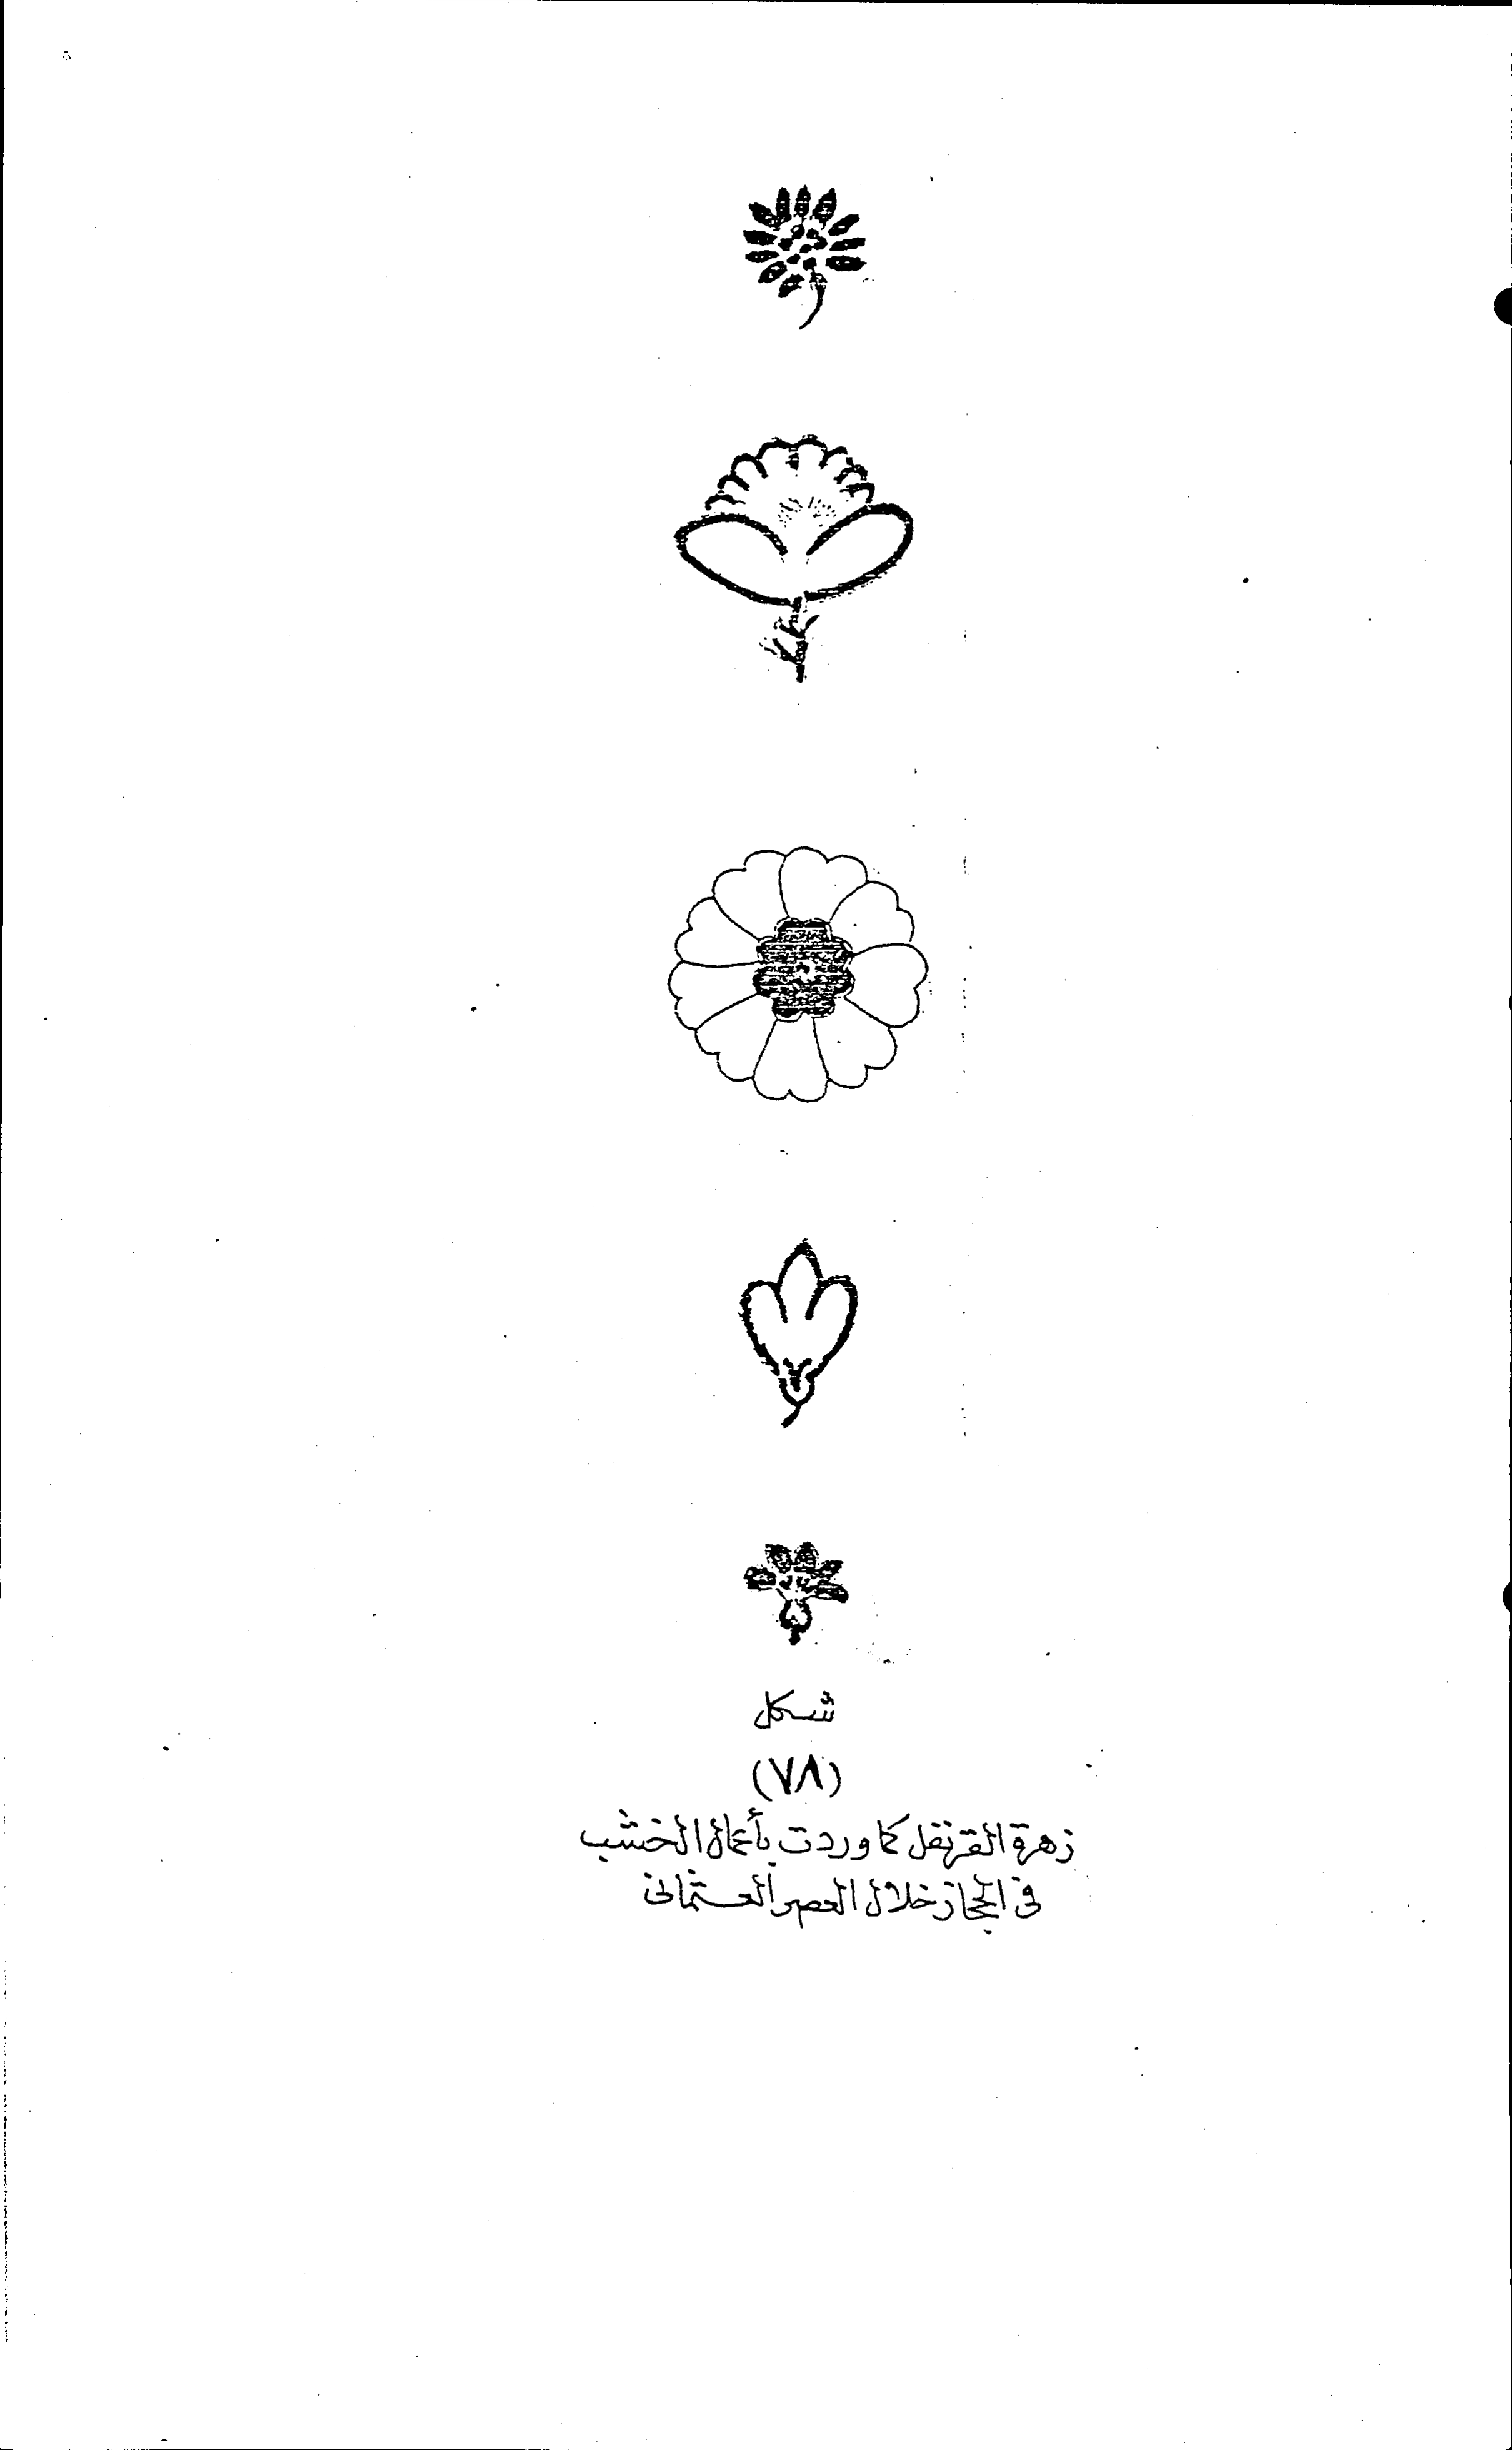 شكل
(٧٨)
زهرة القرنفل كما وردت بأعمال الخشب
فى الحجاز خلال العصر العثمانى